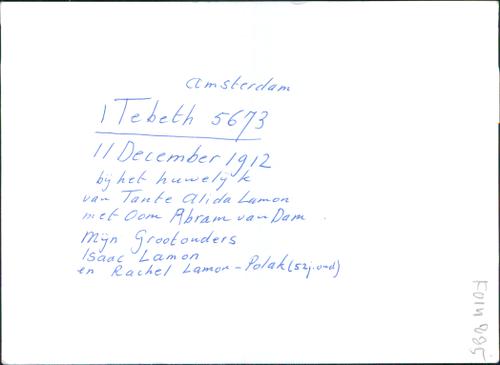 amsterdam
1 Tebeth 5673
11 December 1912
bij het huwelijk
van Tante Alida Lamon
met Oom Abram van Dam.
Mijn Grootouders
Isaac Lamon
en Rachel Lamon-Polak (52j.oud)